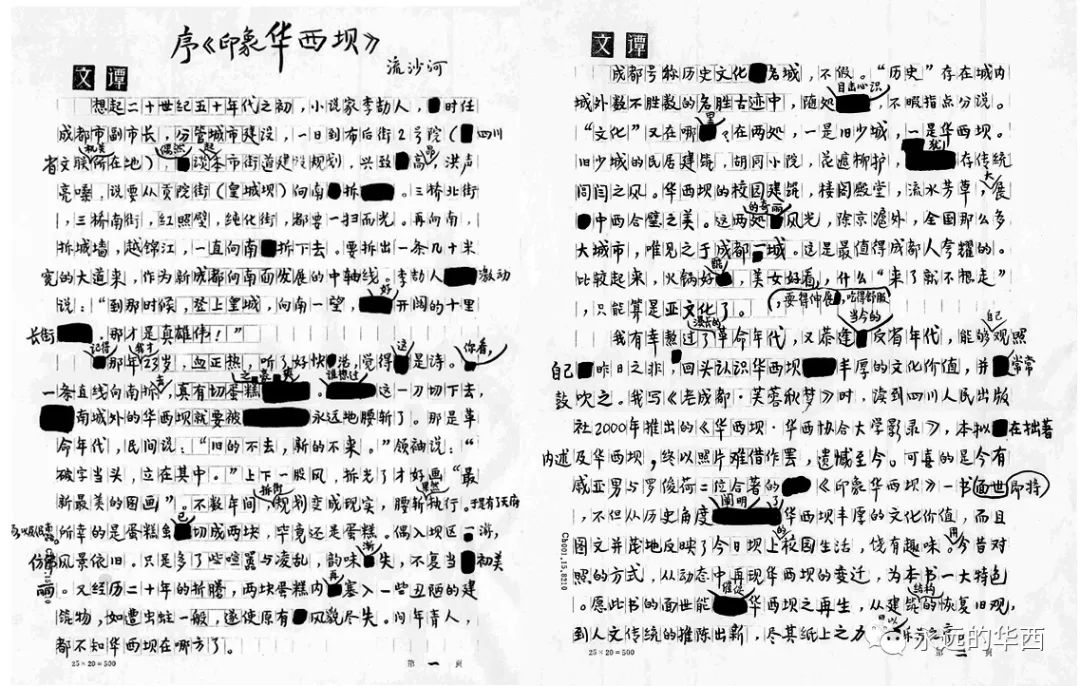 序《印象华西坝》
流沙河
文谭
想起二十世纪五十年代之初，小说家李劼人，时任
成都市副市长，分管城市建设，一日到布后街2号院（四川
省文联机关所在地），偶然谈起本市街道建设规划，兴致高昂，洪声
亮嗓，说要从贡院街（皇城坝）向南拆。三桥北街
，三桥南街，红照壁，纯化街，都要一扫而光。再向南，
拆城墙，越锦江，一直向南拆下去。要拆出一条几十米
宽的大道来，作为新成都向南面发展的中轴线。李劼人激动
说：“到那时候，登上皇城，向南一望，好开阔的十里
长街，那才是真雄伟！”
记得那年23岁，血正热，听了好快活，觉得这是诗。你看，
一条直线向南拆去，真有切蛋糕之豪爽。谁想过这一刀切下去，
南城外的华西坝就要被永远地腰斩了。那是革
命年代，民间说：“旧的不去，新的不来。”领袖说：“
破字当头，立在其中。”上下一股风，拆光了才好画“最
新最美的图画”。不数年间，拆街规划变成现实，腰斩执行。
所幸的是蛋糕虽已切成两块，毕竟还是蛋糕。偶入坝区一游，
仿佛风景依旧。只是多了些喧嚣与凌乱，韵味渐失，不复当初美
丽。又经历二十年的折腾，两块蛋糕内再塞入一些丑陋的建
筑物，如遭虫蛀一般，遂使原有风貌尽失。问年青人，
都不知华西坝在哪方了。
25×20=500
第一页
文谭
成都号称历史文化名城，不假。“历史”存在城内
城外数不胜数的名胜古迹中，随处自出心识，不暇指点分说。
“文化”又在哪里？在两处，一是旧少城，一是华西坝。
旧少城的民居建筑，胡同小院，花遮柳护，犹存传统
闾闬之风。华西坝的校园建筑，楼阁殿堂，流水芳草，大展
中西合璧之美。这两处的奇丽风光，除京沪外，全国那么多
大城市，唯见之于成都一城。这是最值得成都人夸耀的。
比较起来，火锅好吃，美女好看，什么“来了就不想走”
，耍得伸展，吃得舒服，只能算是当今的亚文化了。
我有幸熬过了漫长的革命年代，又恭逢反省年代，能够观照
自己昨日之非，回头认识华西坝丰厚的文化价值，并常常
鼓吹之。我写《老成都·芙蓉秋梦》时，读到四川人民出版
社2000年推出的《华西坝·华西协合大学影录》，本拟在拙著
内述及华西坝，终以照片难借作罢，遗憾至今。可喜的是今有
戚亚男与罗俊荷二位合著的《印象华西坝》一书即将面世
，不但从历史角度阐明了华西坝丰厚的文化价值，而且
图文并茂地反映了今日坝上的校园生活，饶有趣味。用今昔对
照的方式，从动态中再现华西坝的变迁，为本书一大特色
。愿此书的面世能催促华西坝之再生，从建筑结构的恢复旧观，
到人文传统的推陈出新，尽其纸上之力
25×20=500
第二页
Cb001.15.8210
永远的华西